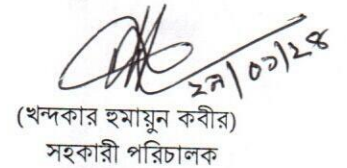 ২৯/০১/২৪
(খন্দকার হুমায়ুন কবীর)
সহকারী পরিচালক